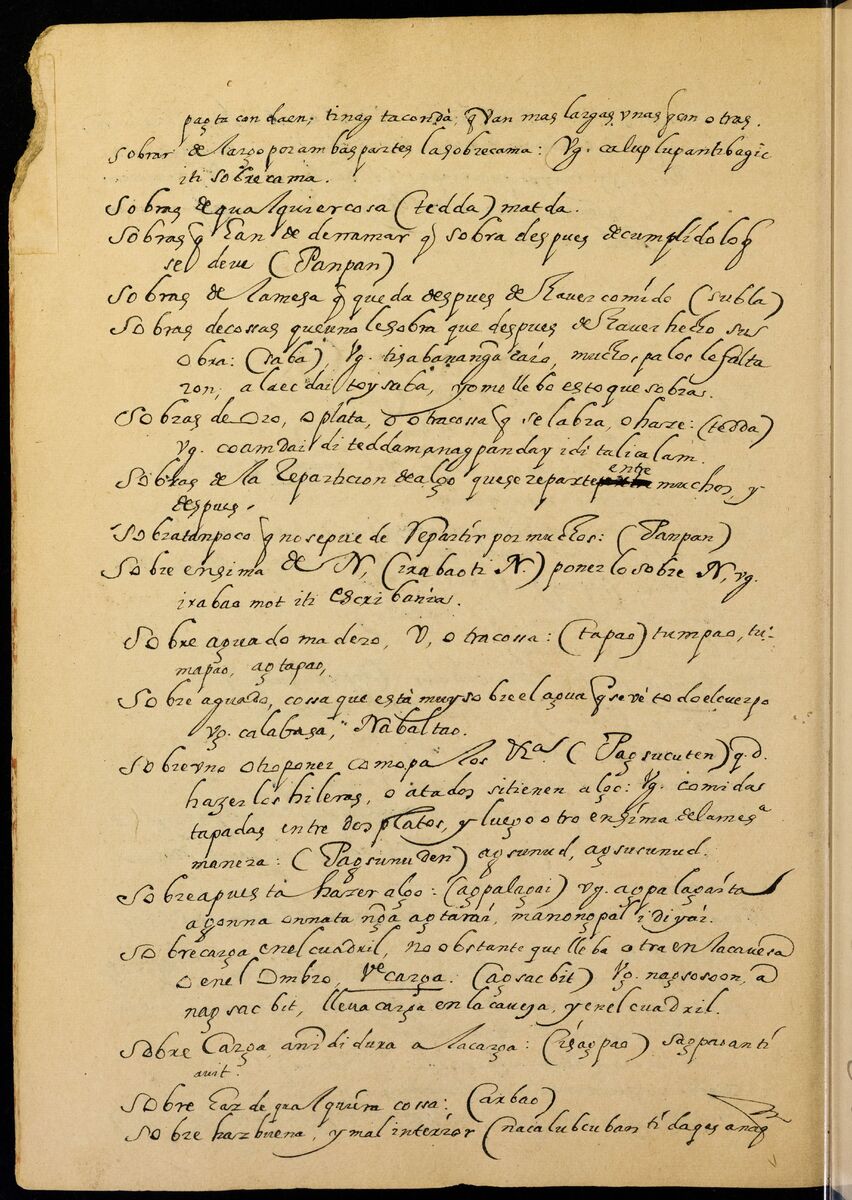 pagta con daen; tinag taconda, q̃ van mas largas, vnas q̃ con otras.
Sobrar de largo por ambas partes la sobrecama: Vg. caluplupanti bagic
iti sobrecama.
Sobras de qualquier cosa (tedda) matda.
Sobras q̃ han de derramar q̃ sobra despues de cumplido lo q̃
se deve (Panpan)
Sobras de la mesa q̃ queda despues de haver comido (subla)
Sobras de cossas que uno le sobra que despues de haver hecho sus
obra: (saba), Vg. tisabananga caio, muchos palos le falta
ron; alaec dai toy saba, yo me llebo esto que sobras.
Sobras de oro, o plata, o otra cossa q̃ se labra, o haze: (tedda)
vg. coamdai di teddamanagpanday idi talicalam.
Sobras de la reparticion de algo que se reparte entre muchos, y
despues.
Sobra tanpoco q̃ no se pue de repartir por muchos: (Panpan)
Sobre ensima de N, (irabao ti N.) ponerlo sobre N, vg.
irabao mot iti escribanias.
Sobre aguado madero, V, otra cossa: (tapao) tumpao, tu-
mapao, agtapao,
Sobre aguado, cossa que està muy sobre el agua q̃ se vé todo el cuerpo
Vg. calabasa, Nabaltao.
Sobre vno otro poner como palos &ras (Pagsucuten) q.d.
hazer los hileras, o atados si tienen algo: Vg. comidas
tapadas entre dos platos, y luego otro ensima de la mesma
manera: (Pagsunuden) agsunud, agsucunud.
Sobre apuesta hazer algo: (agpalagai) vg. agpalagaita
agonna onnata nga agtarai, manongpal idiyai.
Sobrecarga en el cuadril, no obstante que lleba otra en la cavesa
o en el ombro, Ve carga. (agsacbit) Vg. nagsosoon, a
nagsacbit, lleva carga en la caveza, y en el cuadril.
Sobre carga, anididura a la carga: (isagpao) sagpaoanti
auit.
Sobre haz de qualquiera cossa: (arbao)
Sobre haz buena, y mal interior (nacalubcuban ti dages anag